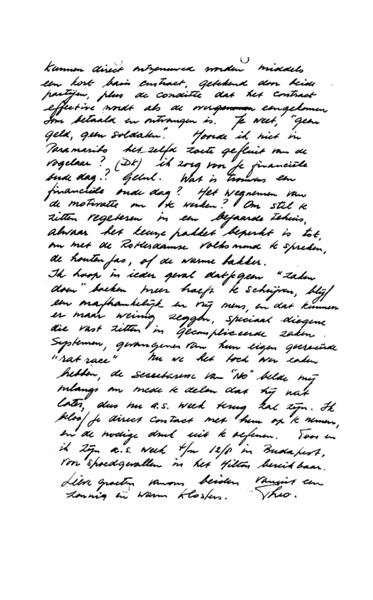 Kunnen direct ontzenuwd worden middels
een kort basis contract, getekend door beide
partijen, plus de conditie dat het contract
effective wordt als de overeengekomen
som betaald en ontvangen is. Je weet, "geen
geld, geen soldaten". Hoorde ik niet in
Paramaribo hetzelfde zoete gefluit van de
vogelaar? (DK) ik zorg voor je financiële
oude dag.? Gelul. Wat is trouwens een
financiële oude dag? Het wegnemen van
de motivatie om te werken? Om stil te
zitten vegeteren in een bejaarde tehuis,
alwaar het keuze pakket beperkt is tot,
om met de Rotterdamse volksmond te spreken,
de houten jas, of de warme bakker.
Ik hoop in ieder geval dat je geen "zaken
doen" boeken meer hoeft te schrijven, blijf
een onafhankelijk en vrij mens, en dat kunnen
er maar weinig zeggen, speciaal diegene
die vast zitten in gecompliceerde zaken
systemen, gevangenen van hun eigen gecreëerde
"rat race" Nu we het toch over zaken
hebben, de secretaresse van "NO" belde mij
onlangs om mede te delen dat hij wat
later, dus nu a.s. week terug zal zijn. Ik
beloof je direct contact met hem op te nemen,
en de nodige druk uit te oefenen. en
ik zijn a.s. week t/m 12/8 in Budapest,
voor spoedgevallen in het Hilton bereikbaar.
Lieve groeten van ons beiden vanuit een
zonnig en warm Klosters. Theo.